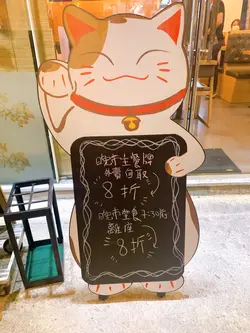 晚市主餐牌
外賣自取
8折
晚市堂食7:30前
離座
8折